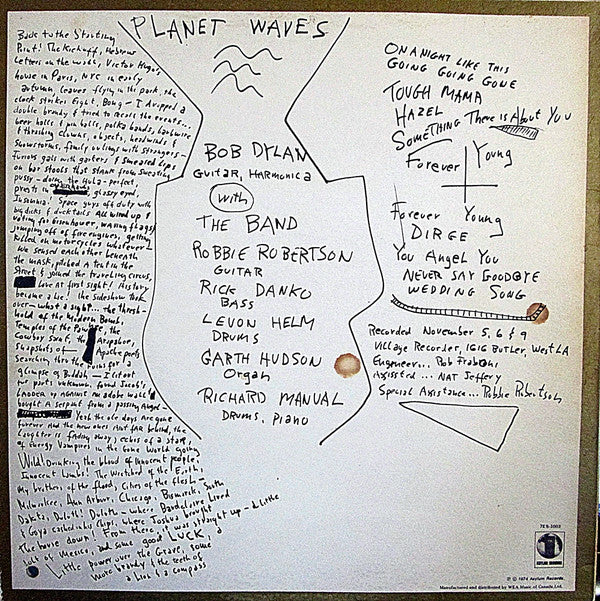 PLANET WAVES
Back to the Starting
Point! The Kickoff, Hebrew
Letters on the wall, Victor Hugo's
house in Paris, NYC in early
autumn, leaves flying in the park, the
clock strikes Eight, Bong - I dropped a
double brandy & tried to recall the events...
beer halls & pin balls, polka bands, barbwire
& thrashing clowns, objects, headwinds &
snowstorms, family outings with strangers -
Furious gals with garters & smeared lips
on bar stools that stank from sweating
pussy - doing the Hula - perfect,
priests in glassy eyed,
Insomnia! Space guys off duty with
big dicks & ducktails all wired up &
voting for Eisenhower, waving flags &
jumping off of fire engines, getting
killed on motorcycles whatever -
We sensed each other beneath
the mask, pitched a tent in the
Street & joined the traveling circus,
love at first sight! History
became a lie! the sideshow took
over - what a sight... the thresh-
hold of the Modern Bomb,
Temples of the Pawnee, the
Cowboy saint, the Arapahoe,
Snapshots of Apache poets
searching thru the ruins for a
glimpse of Buddah - I lit out
for parts unknown, found Jacob's
Ladder up against an adobe wall &
bought a serpent from a passing angel -
Yeah the ole days are gone
forever and the new ones aint far behind, the
Laughter is fading away, echos of a star,
of Energy Vampires in the Gone World going
Wild! Drinking the blood of innocent people,
Innocent Lambs! The Wretched of the Earth,
My brothers of the flood, Cities of the flesh -
Milwaukee, Ann Arbor, Chicago, Bismarck, South
Dakota, Duluth! Duluth - where Baudelaire Lived
& Goya cashed in his Chips, where Joshua brought
the house down! From there, it was straight up - a little
bit of Mexico, and some good LUCK, a
Little power over the Grave, some
more brandy & the teeth of
a Lion & a compass
BOB DYLAN
GUITAR, HARMONICA
with
THE BAND
ROBBIE ROBERTSON
GUITAR
RICK DANKO
BASS
LEVON HELM
DRUMS
GARTH HUDSON
Organ
RICHARD MANUAL
DRUMS, PIANO
ON A NIGHT LIKE THIS
GOING GOING GONE
TOUGH MAMA
HAZEL
SOMETHING There is About You
Forever Young
Forever Young
DIRGE
You Angel You
NEVER SAY GOODBYE
WEDDING SONG
Recorded November 5, 6 & 9
Village Recorder, 1616 BUTLER, West LA
Engineer... Rob Fraboni
Assissted... NAT Jeffery
Special Assistance... Robbie Robertson
7ES-1003
ASYLUM RECORDS
℗ © 1974 Asylum Records
Manufactured and distributed by WEA Music of Canada, Ltd.